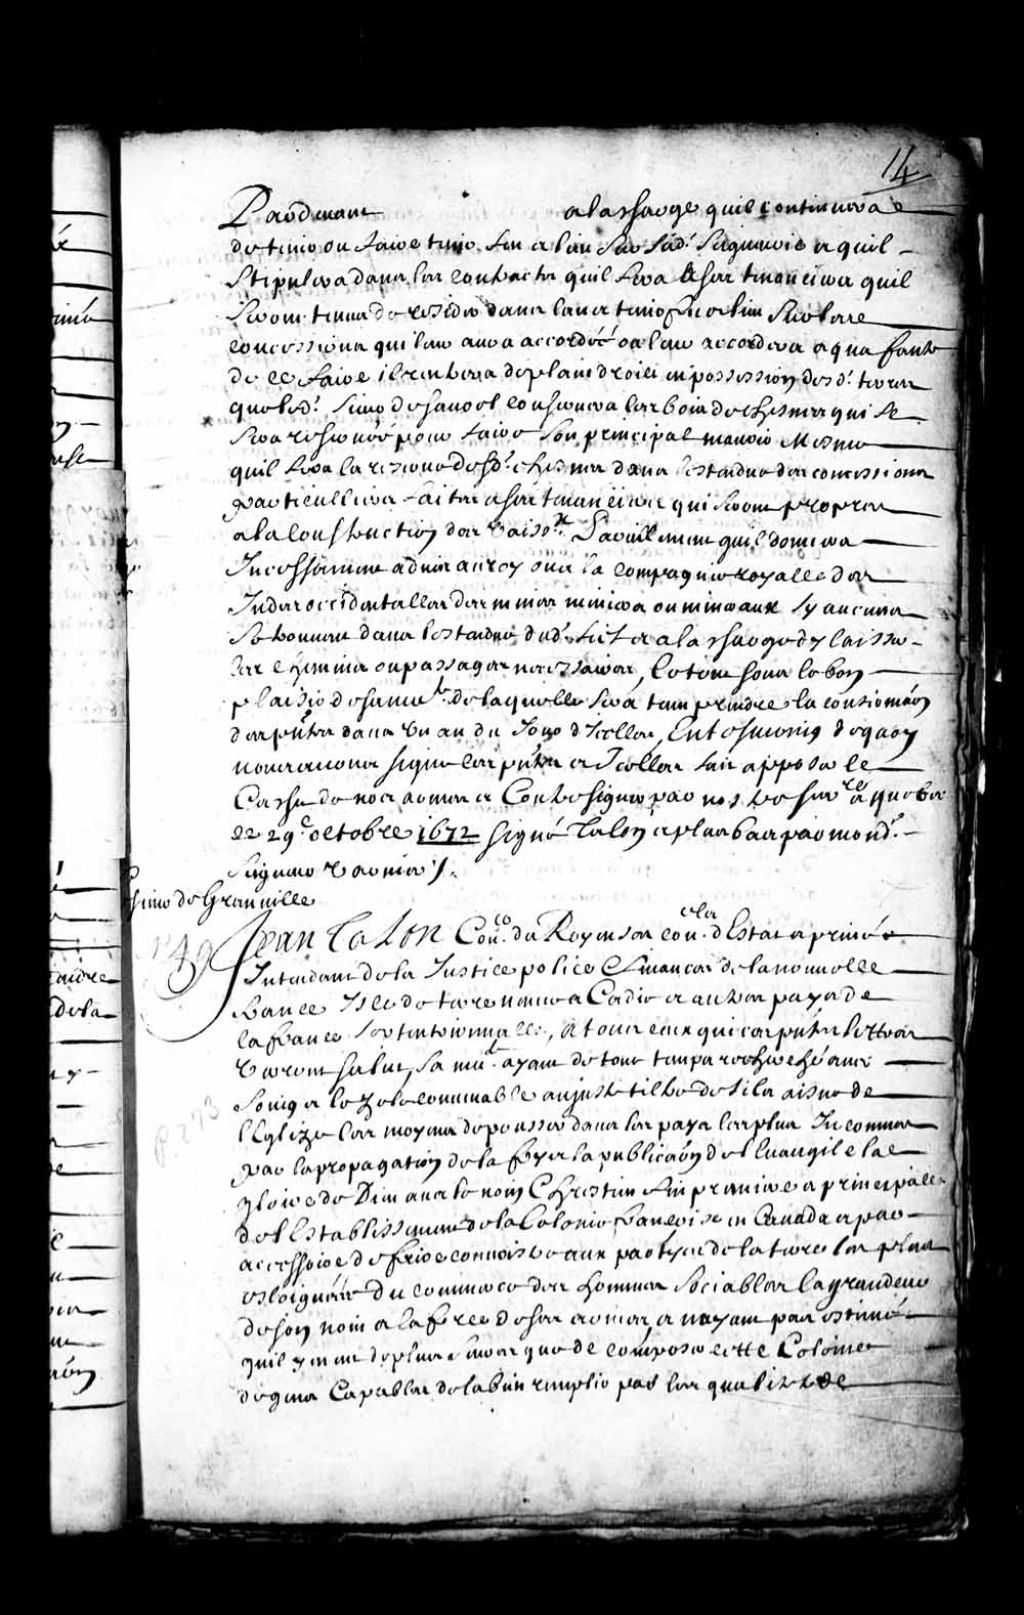 14
Pardevant a la charge quil continuera
de tenir ou faire tenir feu et lieu sur sad. Seigneurie et quil
Stipulera dans les contracts quil fera a ses tenanciers quil
seront tenus de resider dans l'an et tenir feu et lieu sur les
concessions qui leur aura accordéés ou leur accordera et qua faute
de ce faire il rentrera de plain droict en possession desd. terres
que led. Sieur de sauvel conservera les bois de chesnes qui se
sera reservéé pour faire son principal manoir Mesme
quil fera la reserve desd. chesnes dans l'estendue des concessions
particullieres faites a ses tenanciers qui seront propres
a la construction des vaiss.x Pareillement quil donnera
Incessamment advis au roy ou a la compagnie royalle des
Indes occidentalles des mines minieres ou mineraux sy aucuns
se trouvent dans l'estendue dud. fief et a la charge dy laisser
les chemins ou passages necessaires, le tout sous le bon
plaisir de sa ma.té de laquelle sera tenu prendre la confirmãon
des pñtes dans un an du Jour d'Icelles, En tesmoing de quoy
nous avons signé les pñtes et Icelles fait apposer le
Cachet de nos armes et Contresigner par nostre secre.re a quebec
ce 29.e octobre 1672 signé Talon et plus bas par mond.
Seigneur Varnier ./.
Sieur de Granville
N.o 49 Jean Talon Con.er du Roy en son con. d'Estat et privé
Intendant de la Justice police et finances de la nouvelle
france Isle de terre neuve a Cadie et autres pays de
la france Septentrionnalle, A tous ceux qui ces pñtes lettres
verront salut, Sa ma.té ayant de tout temps recherché avec
soing et le Zele convenable au juste tiltre de fils aisné de
l'Eglize les moyens de pousser dans les pays les plus Inconnus
par la propagation de la foy et la publicãon de l'Evangile la
gloire de Dieu avec le nom Chrestien fin premiere et principalle
de l'Establissement de la Colonie francoise en Canada et par
accessoire de faire connoistre aux parties de la terre les plus
esloignéés du commerce des hommes Sociables la grandeur
de son nom et la force de ses armes et nayant pas estimé
quil y en eut de plus seures que de composer cette Colonie
de gens Capables de la bien remplir par les qualitez de